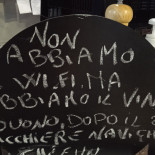 NON
ABBIAMO
WI.FI. MA
ABBIAMO IL VIN
BUONO, DOPO IL 3
BICCHIERE NAVIGH